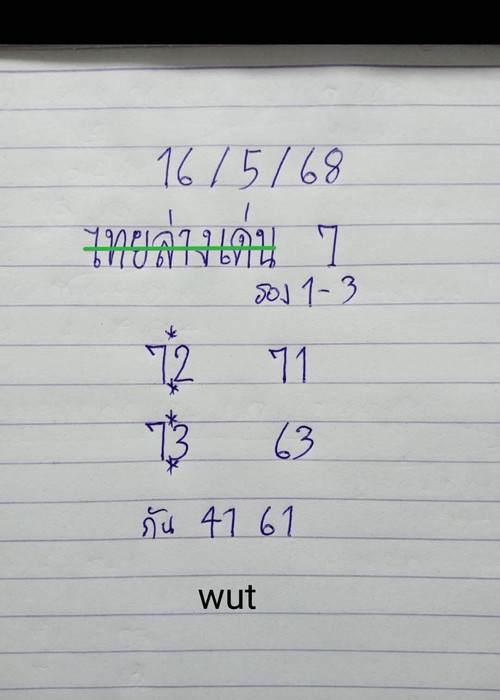 16/5/68
ไทยล่างเด่น 7
รอง 1-3
72 71
73 63
กัน 41 61
wut